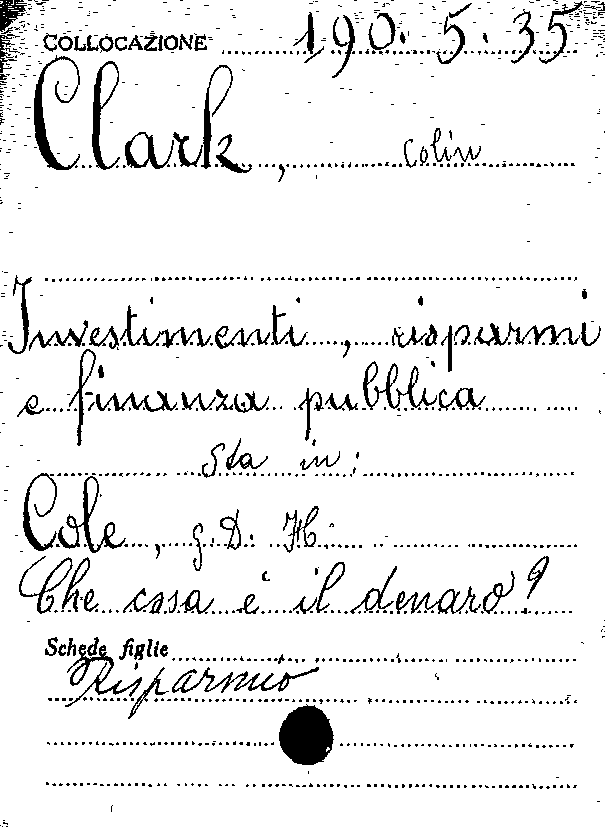 COLLOCAZIONE 190. 5. 35
Clark, Colin
Investimenti, risparmi
e finanza pubblica
Sta in:
Cole, g. D. H.
Che cosa è il denaro?
Schede figlie
Risparmio